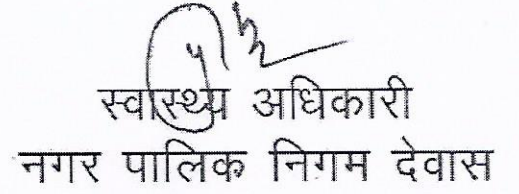 स्वास्थ्य अधिकारी
नगर पालिक निगम देवास